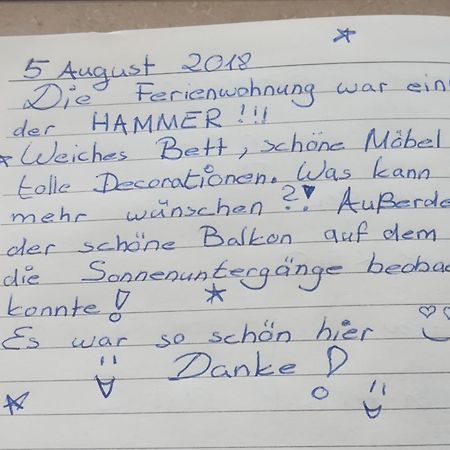 5 August 2018
Die Ferienwohnung war ein
der HAMMER !!!
Weiches Bett, schöne Möbel
tolle Decorationen. Was kann
mehr wünschen ?! Außerde
der schöne Balkon auf dem
die Sonnenuntergänge beoba
konnte!
Es war so schön hier
Danke !